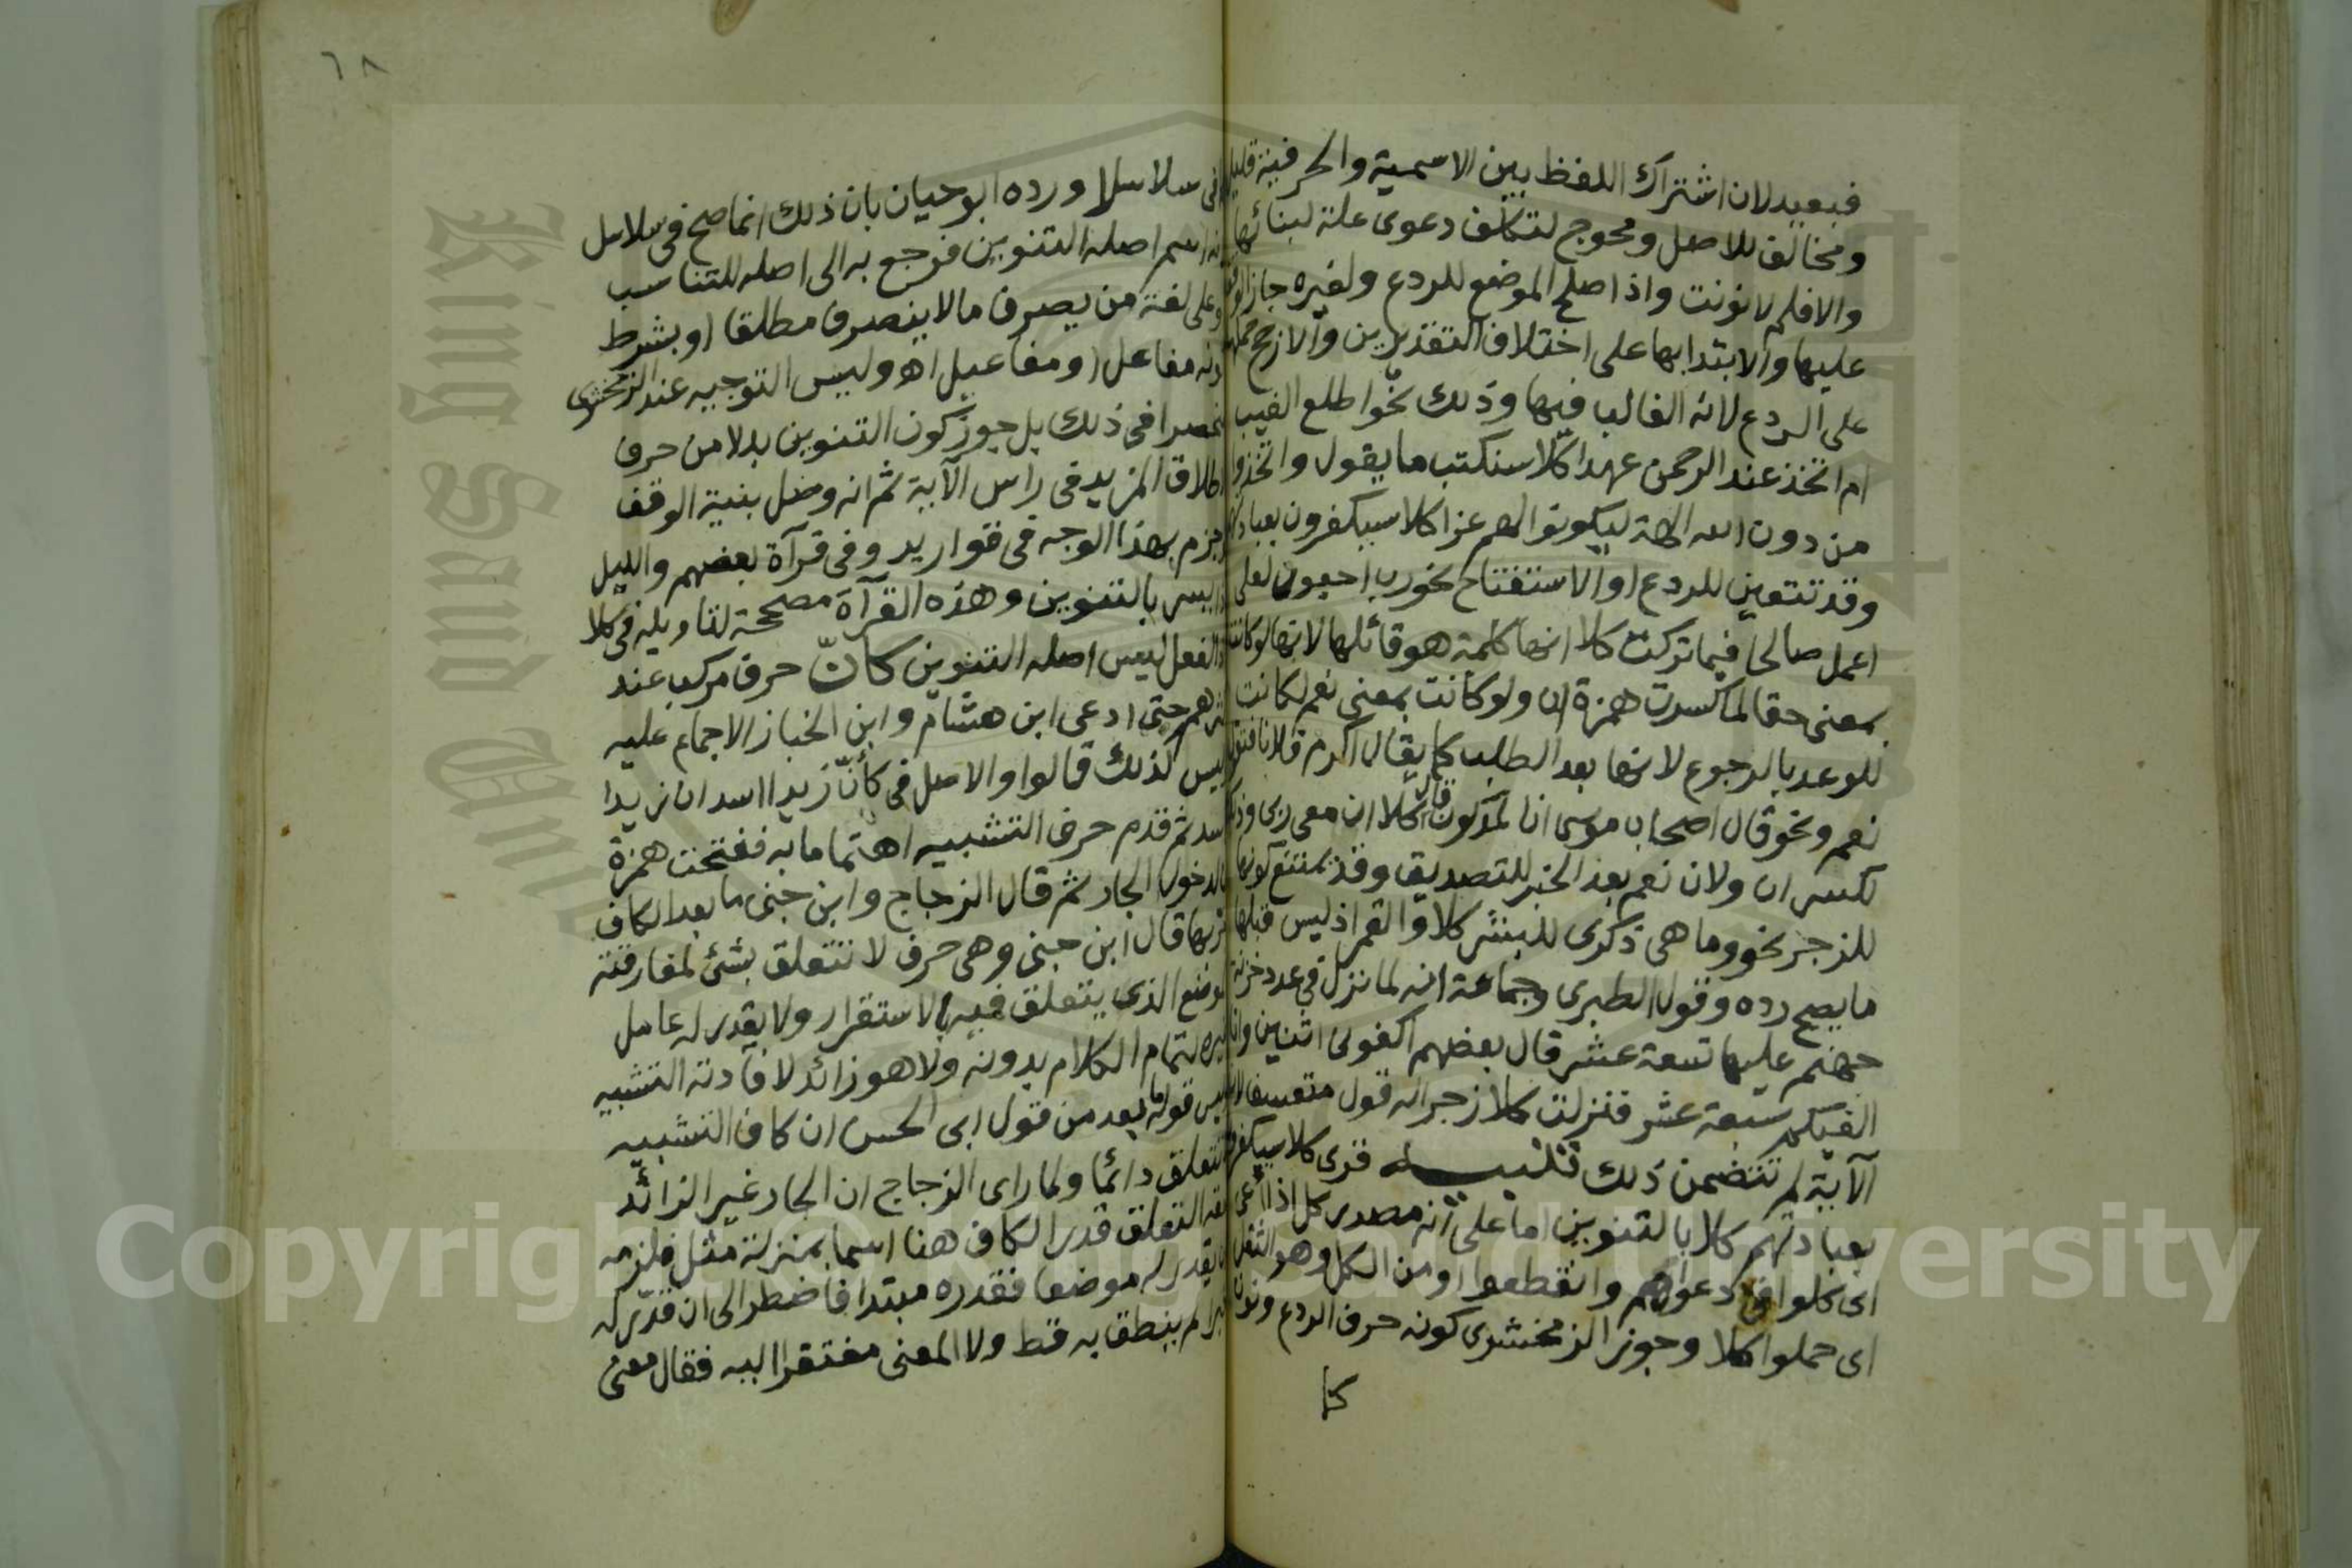 فبعيد لان اشتراك اللفظ بين الاسمية والحرفية قليل
ومخالف للاصل ومحوج لتكلف دعوى علة لبنائها
والا فلم لا نونت واذا صلح الموضع للردع ولغيره جاز الوقف
عليها والابتدا بها على اختلاف التقديرين والارجح حملها
على الردع لانه الغالب فيها وذلك نحو اطلع الغيب
ام اتخذ عند الرحمن عهدا كلا سنكتب ما يقول واتخذوا
من دون الله الهة ليكونوا لهم عزا كلا سيكفرون بعبادتهم
وقد تتعين للردع او الاستفتاح نحو رب ارجعون لعلى
اعمل صالحا فيما تركت كلا انها كلمة هو قائلها لانها لو كانت
بمعنى حقا لما كسرت همزة ان ولو كانت بمعنى نعم لكانت
للوعد بالرجوع لانها بعد الطلب كما يقال اكرم فلانا فتقول
نعم ونحو قال اصحاب موسى انا لمدركون قال كلا ان معى ربى وذلك
لكسر ان ولان نعم بعد الخبر للتصديق وقد يمتنع كونها
للزجر نحو وما هى ذكرى للبشر كلا والقمر اذ ليس قبلها
ما يصح رده وقول الطبرى وجماعة انه لما نزل فى عدد خزنة
جهنم عليها تسعة عشر قال بعضهم اكفونى اثنين وانا
اكفيكم سبعة عشر فنزلت كلا زجرا له قول متعسف لان
الآية لم تتضمن ذلك تنبيه قرى كلا سيكفرون
بعبادتهم كلا بالتنوين اما على انه مصدر كل اذا اعى
اى كلوا فى دعواهم وانقطعوا او من الكل وهو الثقل
اى حملوا كلا وجوز الزمخشرى كونه حرف الردع ونون
كما
٦٨
فى سلاسلا ورده ابو حيان بان ذلك انما صح فى سلاسل
لانه اسم اصله التنوين فرجع به الى اصله للتناسب
وعلى لغة من يصرف ما لا ينصرف مطلقا او بشرط
كونه مفاعل او مفاعيل اه وليس التوجيه عند الزمخشرى
منحصرا فى ذلك بل جوز كون التنوين بدلا من حرف
الاطلاق المزيد فى راس الآية ثم انه وصل بنية الوقف
وجزم بهذا الوجه فى قوارير وفى قرآة بعضهم والليل
اذا يسر بالتنوين وهذه القرآة مصححة لتاويله فى كلا
اذ الفعل ليس اصله التنوين كأنّ حرف مركب عند
اكثرهم حتى ادعى ابن هشام وابن الخباز الاجماع عليه
وليس كذلك قالوا والاصل فى كأنّ زيدا اسد ان زيدا
كاسد ثم قدم حرف التشبيه اهتماما به ففتحت همزة
ان لدخول الجار ثم قال الزجاج وابن جنى ما بعد الكاف
جر بها قال ابن جنى وهى حرف لا تتعلق بشئ لمفارقته
الموضع الذى يتعلق فيه بالاستقرار ولا يقدر له عامل
غيره لتمام الكلام بدونه ولا هو زائد لافادته التشبيه
وليس قوله بابعد من قول ابى الحسن ان كاف التشبيه
لا تتعلق دائما ولما راى الزجاج ان الجار غير الزائد
حقه التعلق قدر الكاف هنا اسما بمنزلة مثل فلزمه
ان يقدر له موضعا فقدره مبتدا فاضطر الى ان قدّر له
خبرا لم ينطق به قط ولا المعنى مفتقرا اليه فقال معنى